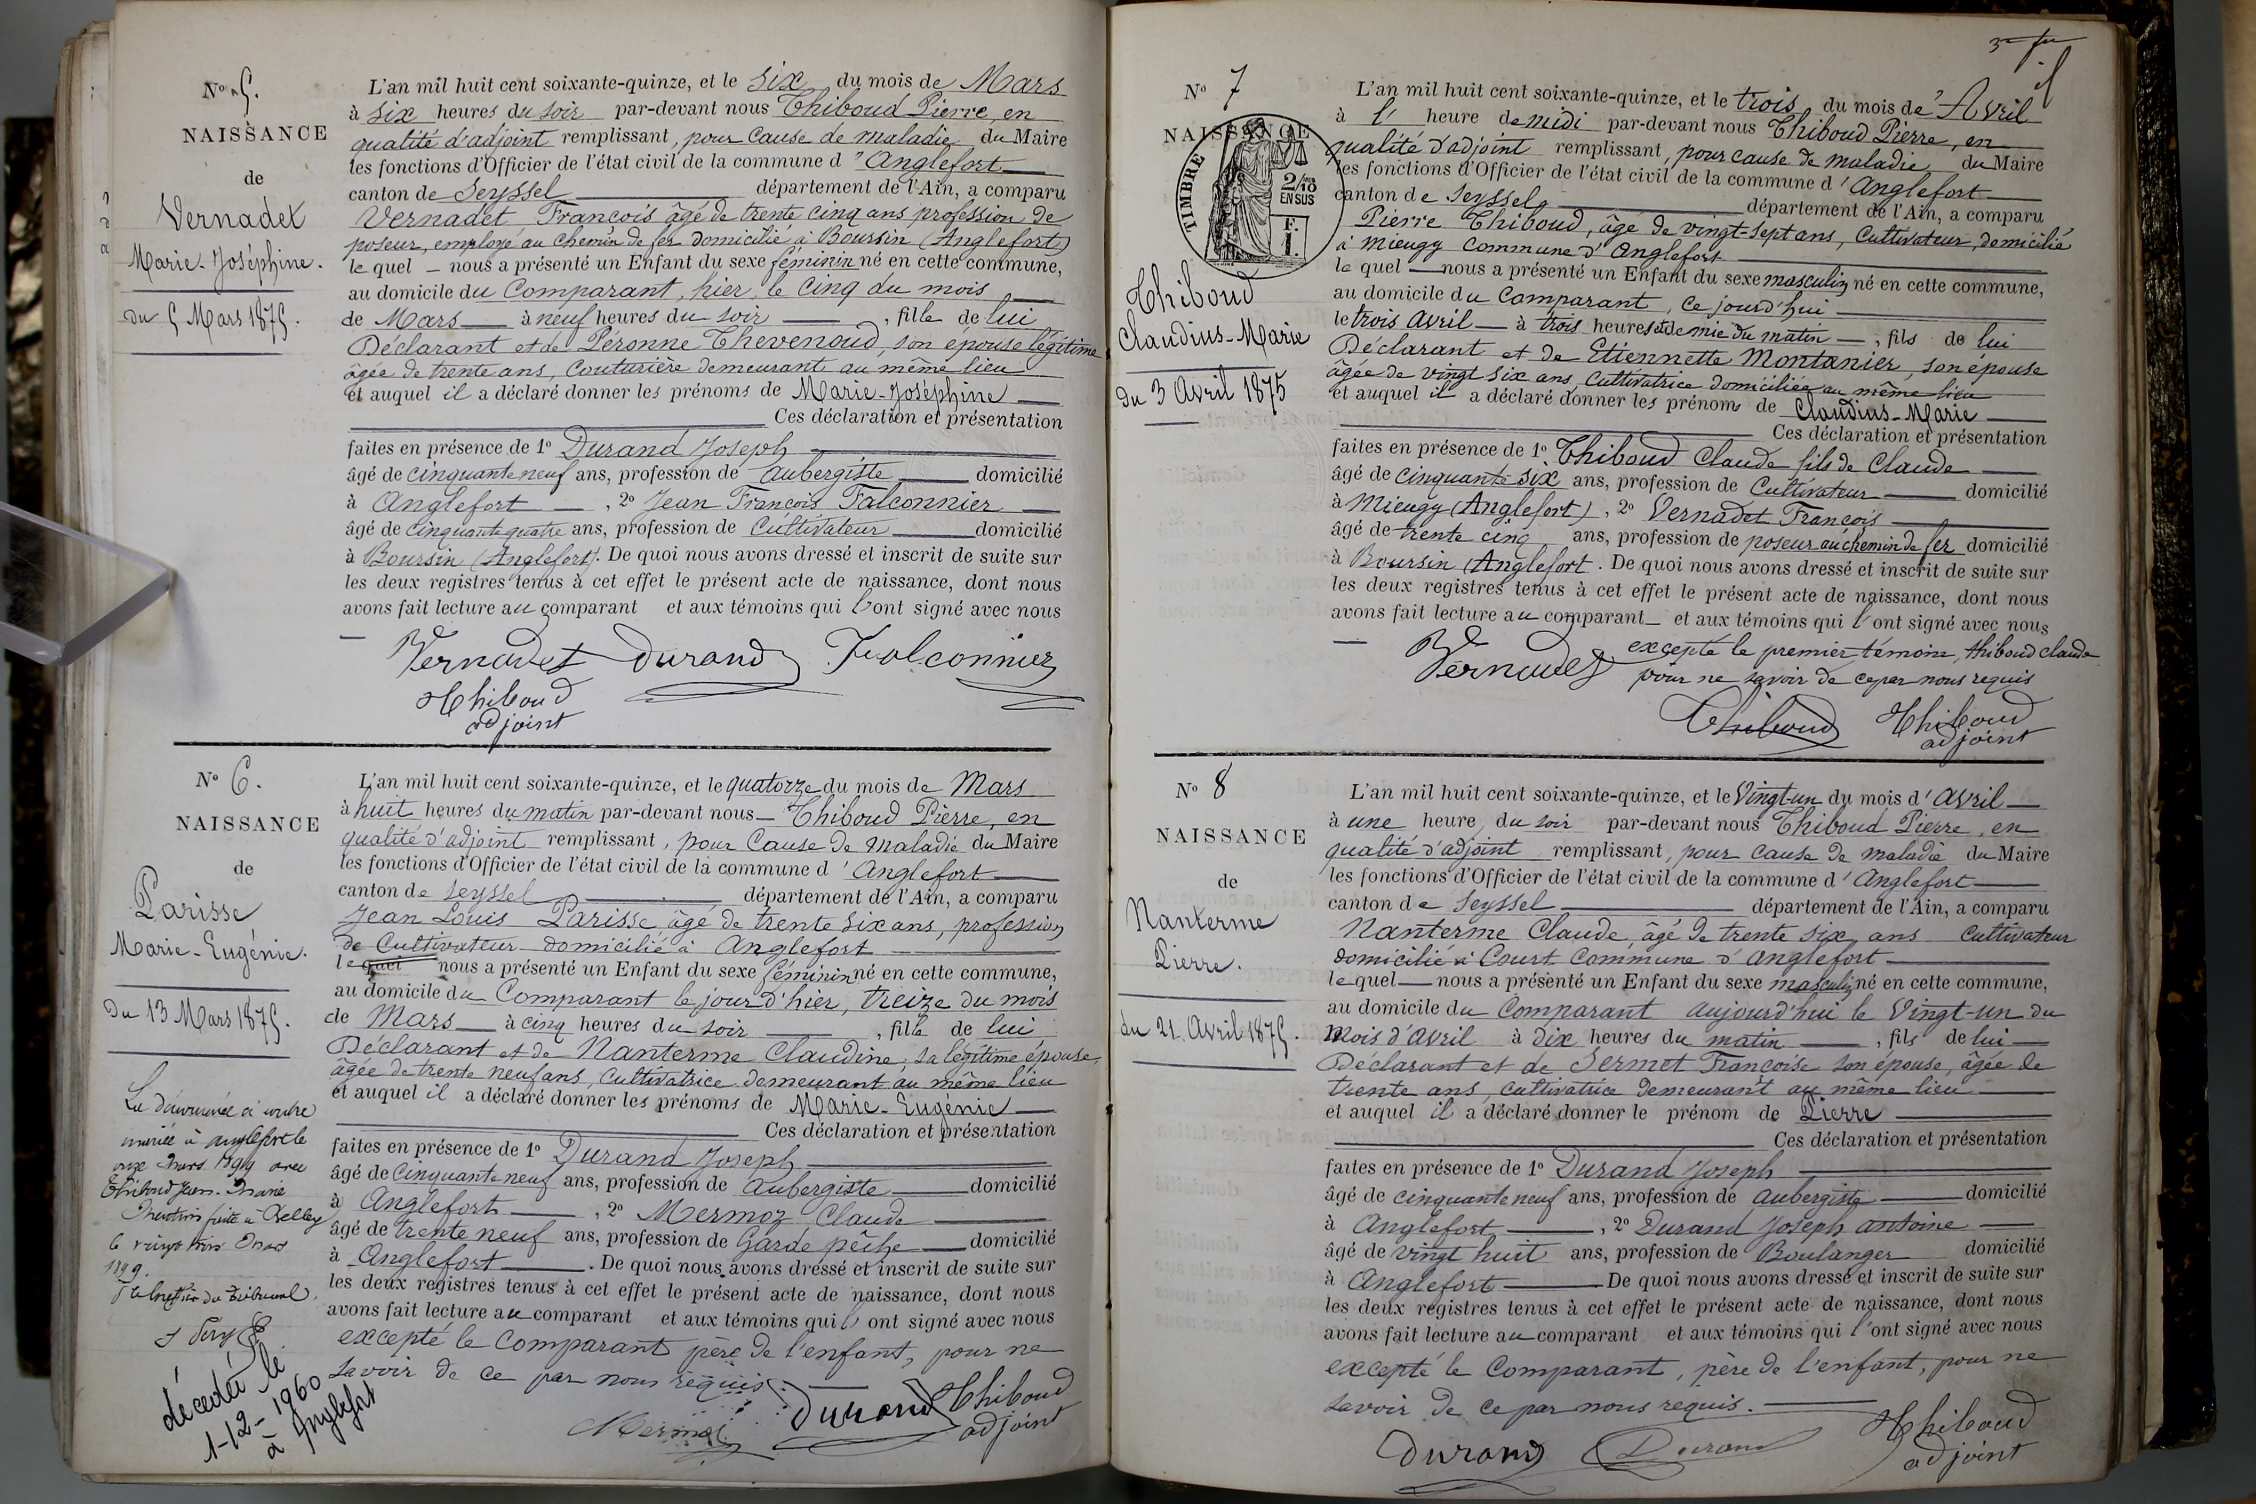 N° 5.
NAISSANCE
de
Vernadet
Marie-Joséphine.
du 5 Mars 1875.
L'an mil huit cent soixante-quinze, et le six du mois de Mars
à six heures du soir par-devant nous Thiboud Pierre, en
qualité d'adjoint remplissant, pour cause de maladie du Maire
les fonctions d'Officier de l'état civil de la commune d'Anglefort
canton de Seyssel département de l'Ain, a comparu
Vernadet François âgé de trente cinq ans profession de
poseur, employé au chemin de fer domicilié à Boursin (Anglefort)
le quel nous a présenté un Enfant du sexe féminin né en cette commune,
au domicile du Comparant, hier, le cinq du mois
de Mars à neuf heures du soir, fille de lui
Déclarant et de Péronne Thevenoud, son épouse légitime
âgée de trente ans, couturière demeurant au même lieu
et auquel il a déclaré donner les prénoms de Marie-Joséphine
Ces déclaration et présentation
faites en présence de 1° Durand Joseph
âgé de cinquante neuf ans, profession de aubergiste domicilié
à Anglefort, 2° Jean François Falconnier
âgé de cinquante quatre ans, profession de Cultivateur domicilié
à Boursin (Anglefort). De quoi nous avons dressé et inscrit de suite sur
les deux registres tenus à cet effet le présent acte de naissance, dont nous
avons fait lecture au comparant et aux témoins qui l'ont signé avec nous
Vernadet Durand Falconnier
Thiboud
adjoint
N° 6.
NAISSANCE
de
Parisse
Marie-Eugénie.
Du 13 Mars 1875.
L'an mil huit cent soixante-quinze, et le quatorze du mois de Mars
à huit heures du matin par-devant nous Thiboud Pierre, en
qualité d'adjoint remplissant, pour cause de maladie du Maire
les fonctions d'Officier de l'état civil de la commune d'Anglefort
canton de Seyssel département de l'Ain, a comparu
Jean Louis Parisse, âgé de trente six ans, profession
de Cultivateur domicilié à Anglefort
lequel nous a présenté un Enfant du sexe féminin né en cette commune,
au domicile du Comparant le jour d'hier, treize du mois
de Mars à cinq heures du soir, fille de lui
Déclarant et de Nanterme Claudine, sa légitime épouse,
âgée de trente neuf ans, cultivatrice demeurant au même lieu
et auquel il a déclaré donner les prénoms de Marie-Eugénie
Ces déclaration et présentation
faites en présence de 1° Durand Joseph
âgé de cinquante neuf ans, profession de aubergiste domicilié
à Anglefort, 2° Mermoz Claude
âgé de trente neuf ans, profession de Garde pêche domicilié
à Anglefort. De quoi nous avons dressé et inscrit de suite sur
les deux registres tenus à cet effet le présent acte de naissance, dont nous
avons fait lecture au comparant et aux témoins qui l'ont signé avec nous
excepté le comparant père de l'enfant, pour ne
savoir de ce par nous requis.
Mermoz Durand Thiboud
adjoint
La dénommée ci contre
mariée à anglefort le
onze Mars 1899 avec
Thiboud Jean-Marie
Mention faite à Belley
le vingt trois Mars
1899.
Le Greffier du Tribunal,
décédée le
1-12-1960
à Anglefort
3e
N° 7
NAISSANCE
TIMBRE
2/10
EN SUS
F.
1.
Thiboud
Claudius-Marie
du 3 Avril 1875
L'an mil huit cent soixante-quinze, et le trois du mois d'Avril
à l' heure de midi par-devant nous Thiboud Pierre, en
qualité d'adjoint remplissant, pour cause de maladie du Maire
les fonctions d'Officier de l'état civil de la commune d'Anglefort
canton de Seyssel département de l'Ain, a comparu
Pierre Thiboud, âgé de vingt-sept ans, Cultivateur, domicilié
à Mieugy Commune d'Anglefort
le quel nous a présenté un Enfant du sexe masculin né en cette commune,
au domicile du Comparant, ce jourd'hui
le trois Avril à trois heures et demie du matin, fils de lui
Déclarant et de Etiennette Montanier, son épouse
âgée de vingt six ans, Cultivatrice domiciliée au même lieu
et auquel il a déclaré donner les prénoms de Claudius-Marie
Ces déclaration et présentation
faites en présence de 1° Thiboud Claude fils de Claude
âgé de cinquante six ans, profession de Cultivateur domicilié
à Mieugy (Anglefort), 2° Vernadet François
âgé de trente cinq ans, profession de poseur au chemin de fer domicilié
à Boursin (Anglefort. De quoi nous avons dressé et inscrit de suite sur
les deux registres tenus à cet effet le présent acte de naissance, dont nous
avons fait lecture au comparant et aux témoins qui l'ont signé avec nous
excepté le premier témoin, thiboud claude
pour ne savoir de ce par nous requis
Vernadet
Thiboud Thiboud
adjoint
N° 8
NAISSANCE
de
Nanterme
Pierre.
du 21. Avril 1875.
L'an mil huit cent soixante-quinze, et le Vingt-un du mois d'Avril
à une heure du soir par-devant nous Thiboud Pierre, en
qualité d'adjoint remplissant, pour cause de maladie du Maire
les fonctions d'Officier de l'état civil de la commune d'Anglefort
canton de Seyssel département de l'Ain, a comparu
Nanterme Claude, âgé de trente six ans Cultivateur
domicilié à Court Commune d'Anglefort
le quel nous a présenté un Enfant du sexe masculin né en cette commune,
au domicile du Comparant aujourd'hui le Vingt-un du
mois d'avril à dix heures du matin, fils de lui
Déclarant et de Sermet Françoise son épouse, âgée de
trente ans, cultivatrice demeurant au même lieu
et auquel il a déclaré donner le prénom de Pierre
Ces déclaration et présentation
faites en présence de 1° Durand Joseph
âgé de cinquante neuf ans, profession de aubergiste domicilié
à Anglefort, 2° Durand Joseph Antoine
âgé de vingt huit ans, profession de Boulanger domicilié
à Anglefort De quoi nous avons dressé et inscrit de suite sur
les deux registres tenus à cet effet le présent acte de naissance, dont nous
avons fait lecture au comparant et aux témoins qui l'ont signé avec nous
excepté le Comparant, père de l'enfant, pour ne
savoir de ce par nous requis.
Durand Durand Thiboud
adjoint